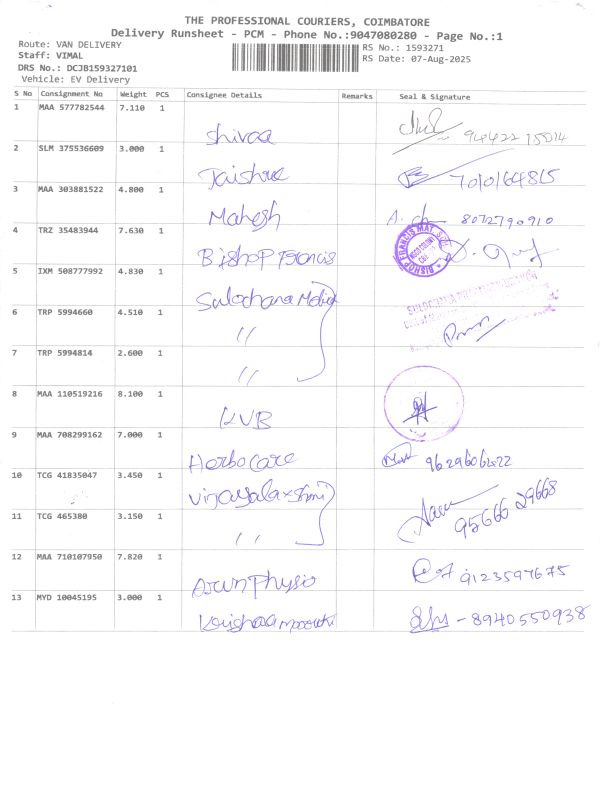 THE PROFESSIONAL COURIERS, COIMBATORE
Delivery Runsheet - PCM - Phone No.:9047080280 - Page No.:1
Route: VAN DELIVERY
Staff: VIMAL
DRS No.: DCJB159327101
Vehicle: EV Delivery
RS No.: 1593271
RS Date: 07-Aug-2025
S No Consignment No Weight PCS Consignee Details Remarks Seal & Signature
1 MAA 577782544 7.110 1 Shivaa
2 SLM 375536609 3.000 1 Jaishree 7010164815
3 MAA 303881522 4.800 1 Mahesh A. 8072790910
4 TRZ 35483944 7.630 1 Bishop Francis BISHOP FRANCIS MAT
5 IXM 508777992 4.830 1 Sulochana
6 TRP 5994660 4.510 1 "
7 TRP 5994814 2.600 1 "
8 MAA 110519216 8.100 1 KVB
9 MAA 708299162 7.000 1 Herbo Care
10 TCG 41835047 3.450 1 Vijayalaxshmi 95666 29668
11 TCG 465380 3.150 1 "
12 MAA 710107950 7.820 1 Arun Physio 9123597675
13 MYD 10045195 3.000 1 - 8940550938